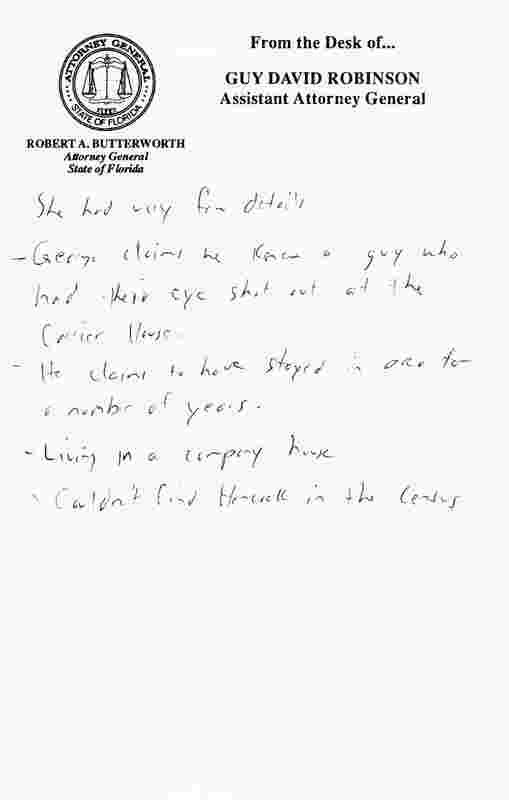 ATTORNEY GENERAL
STATE OF FLORIDA
From the Desk of...
GUY DAVID ROBINSON
Assistant Attorney General
ROBERT A. BUTTERWORTH
Attorney General
State of Florida
She had very few details
- George claims he knew a guy who
had their eye shot out at the
Carrier House.
- He claims to have stayed in area for
a number of years.
- Living in a company house
- Couldn't find in the Census